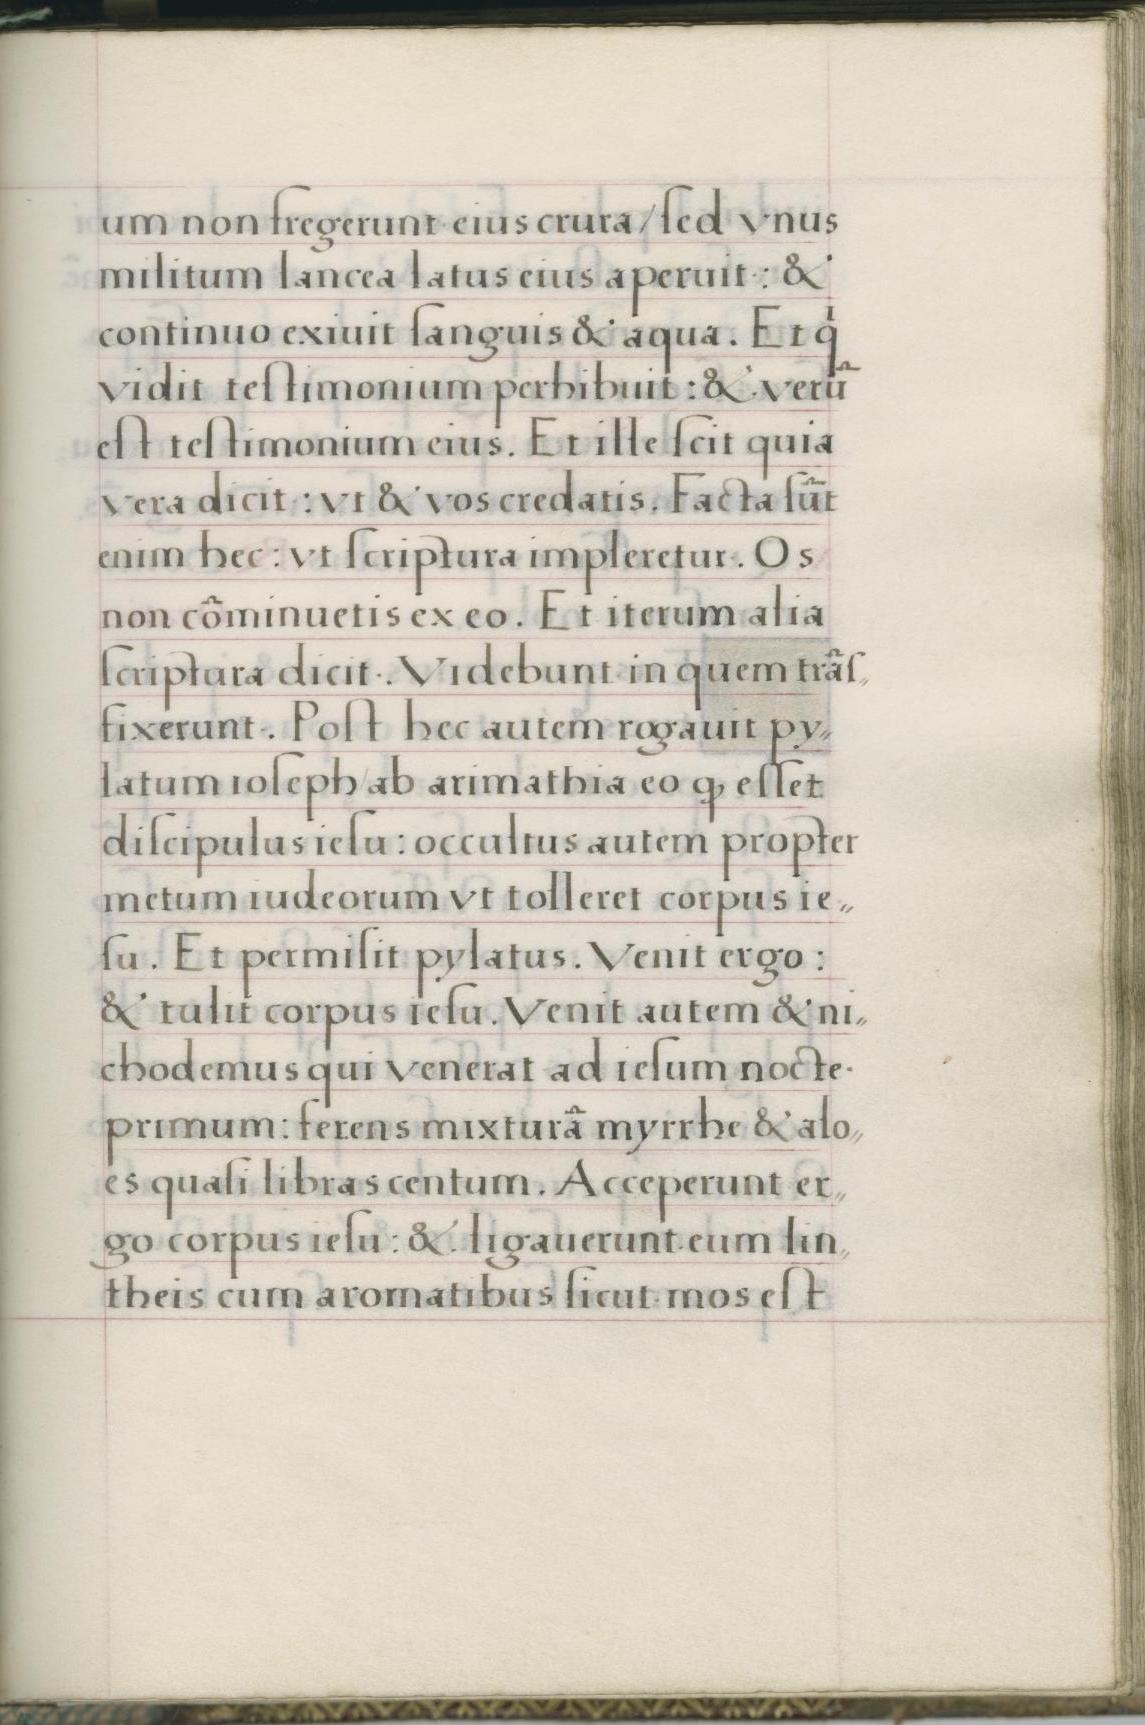 um non fregerunt eius crura / ſed vnus
militum lancea latus eius aperuit : &
continuo exiuit ſanguis & aqua . Et qͥ
vidit teſtimonium perhibuit : & verũ
eſt teſtimonium eius . Et ille ſcit quia
vera dicit : vt & vos credatis . Facta ſũt
enim hec : vt ſcriptura impleretur . Os
non cõminuetis ex eo . Et iterum alia
ſcriptura dicit . Videbunt in quem trãſ〃
fixerunt . Poſt hec autem rogauit py〃
latum ioſeph / ab arimathia eo ꝙ eſſet
diſcipulus ieſu : occultus autem propter
metum iudeorum vt tolleret corpus ie〃
ſu . Et permiſit pylatus . Venit ergo :
& tulit corpus ieſu . Venit autem & ni〃
chodemus qui venerat ad ieſum nocte
primum : ferens mixturã myrrhe & alo〃
es quaſi libras centum . Acceperunt er〃
go corpus ieſu : & ligauerunt eum lin〃
theis cum aromatibus ſicut mos eſt